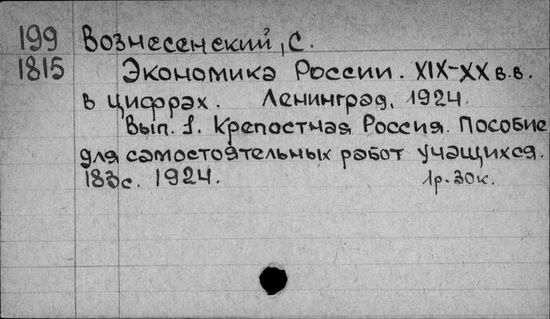 199 Вознесенский, С.
1815 Экономика России. XIX-XX в.в.
в цифрах. Ленинград, 1924.
Вып. 1. Крепостная Россия. Пособие
для самостоятельных работ учащихся.
183с. 1924. 1р.30к.